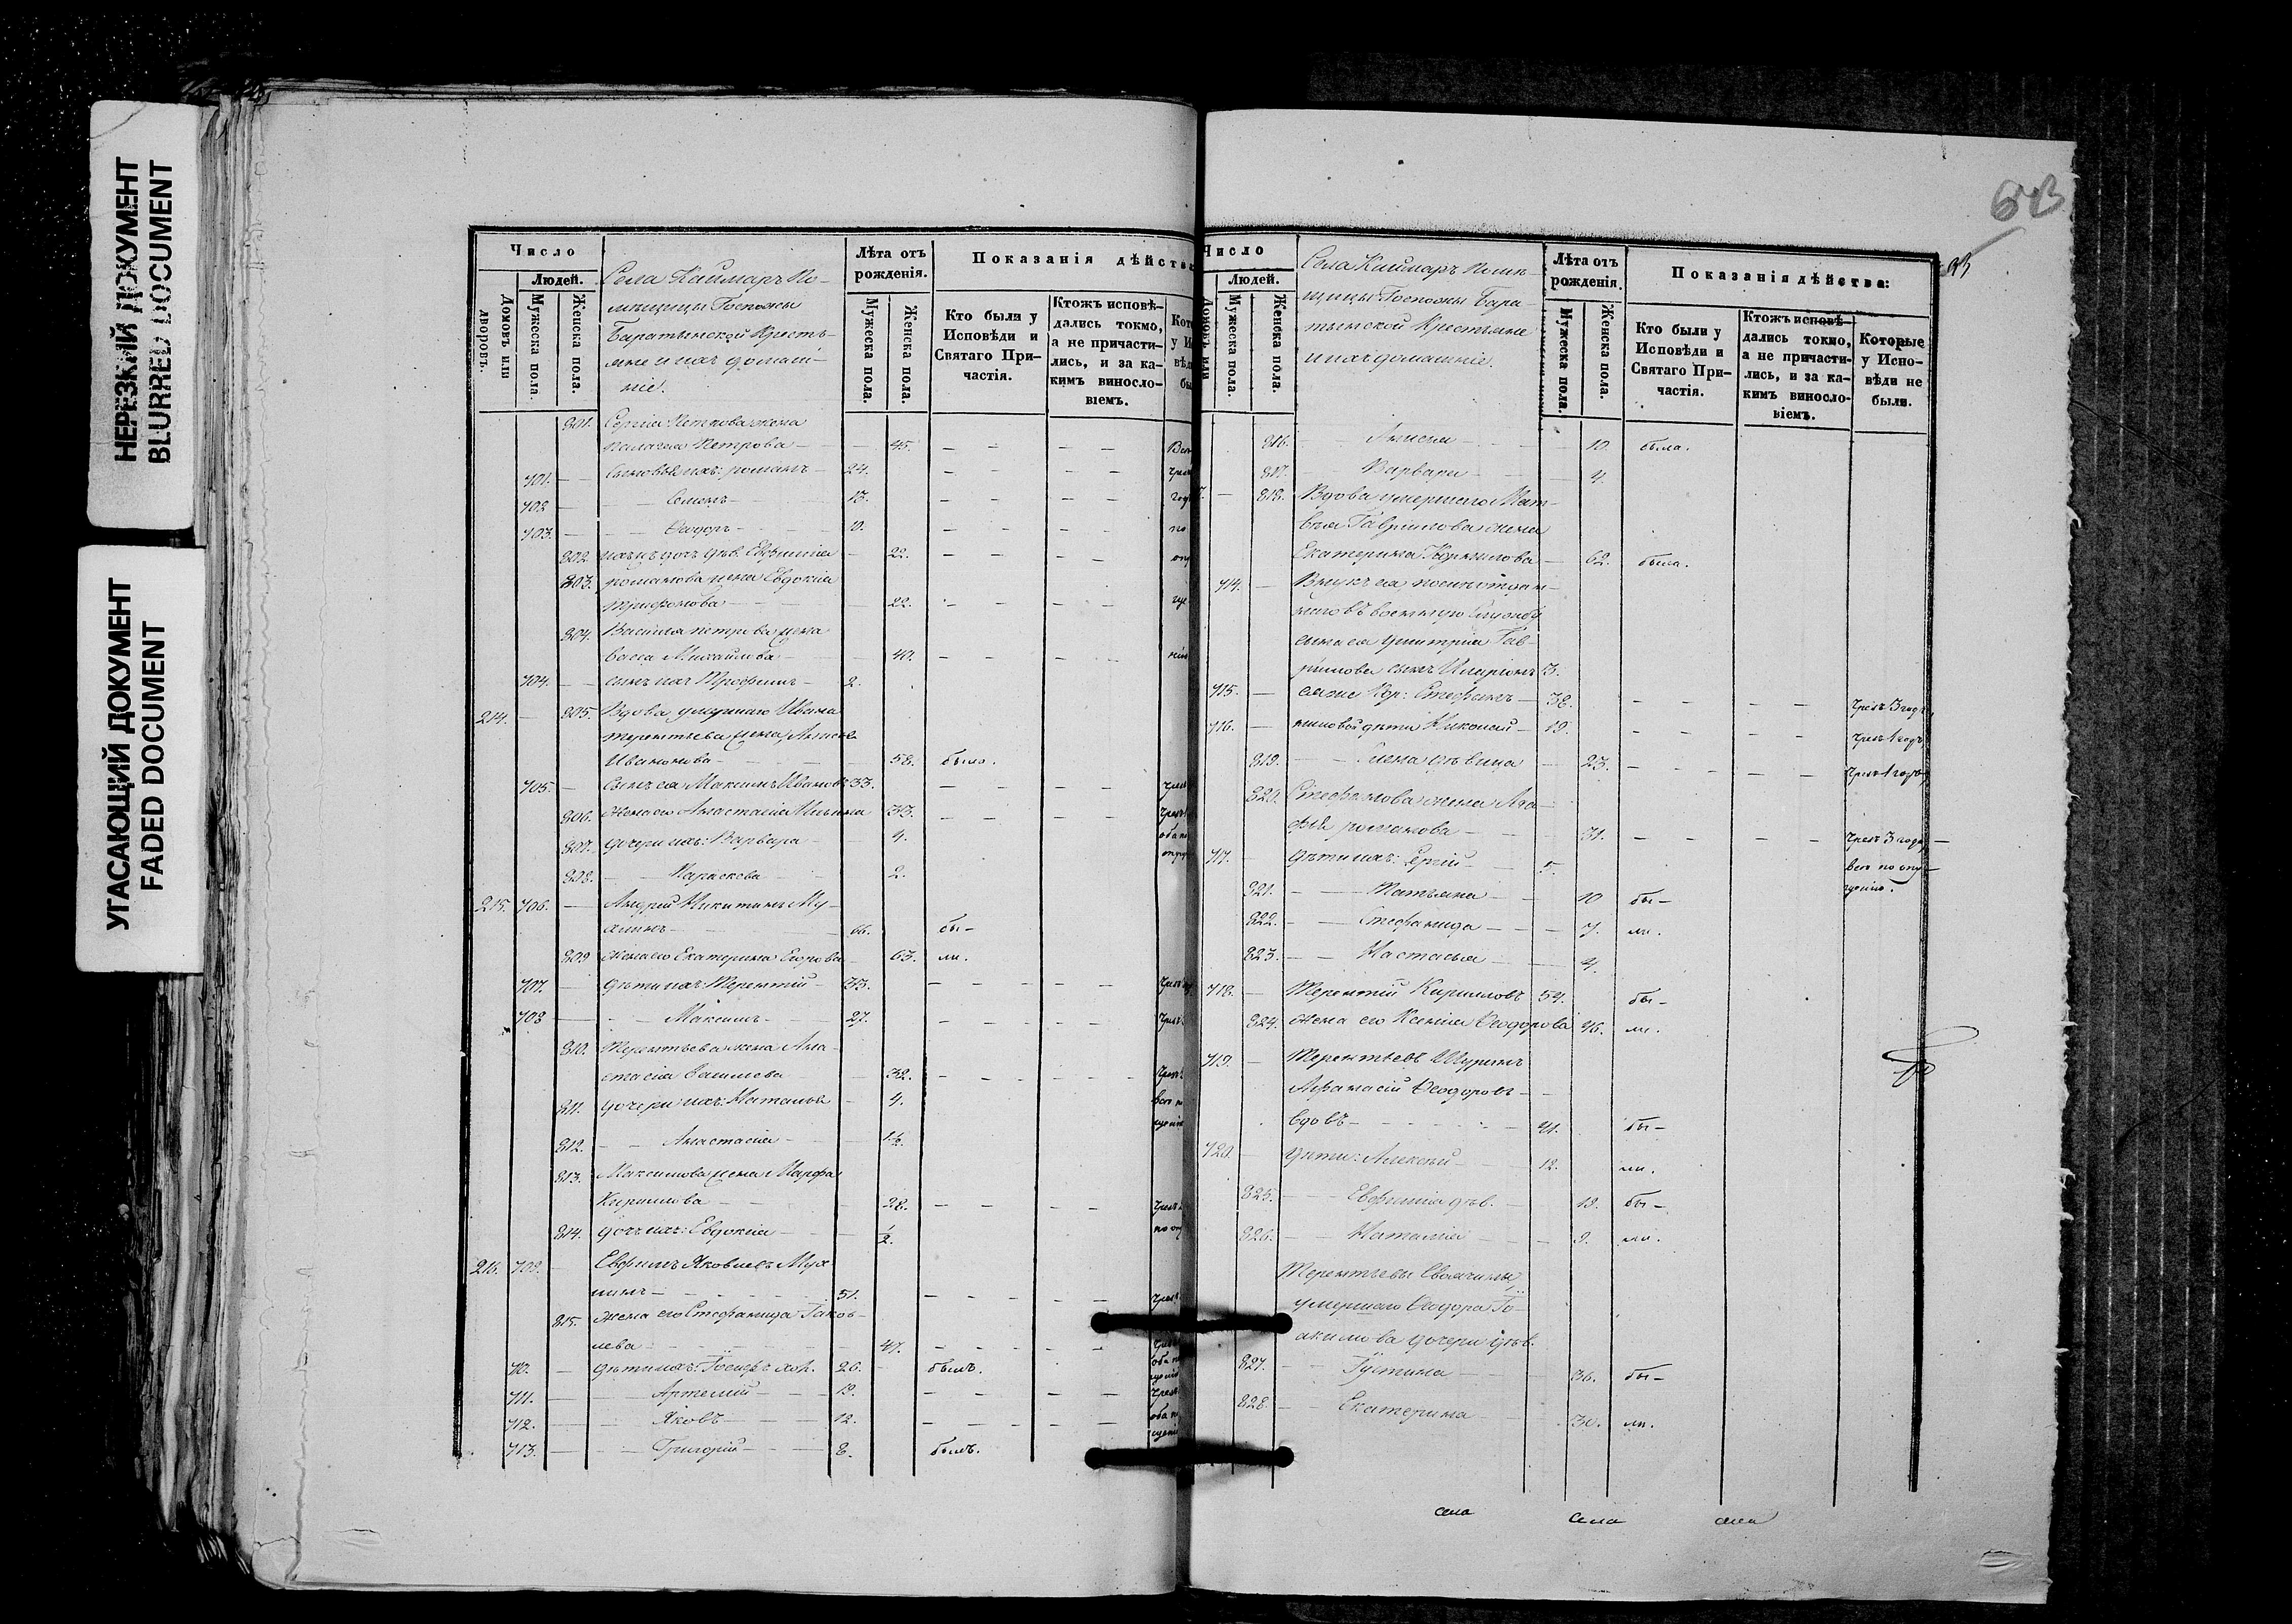 НЕРЕЗКИЙ ДОКУМЕНТ
BLURRED DOCUMENT
УГАСАЮЩИЙ ДОКУМЕНТ
FADED DOCUMENT
Число
Людей.
Домовъ или дворовъ.
Мужеска пола.
Женска пола.
Села Каймаръ По-
мѣщицы Госпожи
Баратынской Кресть-
яне и ихъ домаш-
ніе.
Лѣта отъ рожденія.
Мужеска пола.
Женска пола.
Показанія дѣйства
Кто были у Исповѣди и Святаго При-частія.
Ктожъ исповѣ-дались токмо, а не причасти-лись, и за ка-кимъ винословіемъ.
801. Сергія Петрова жена
Палагея Петрова — 45. — — — —
701. — Сыновья ихъ: Романъ — 24. — — — —
702 — Семенъ — 13. — — — —
703. — Ѳеодоръ — 10. — — — —
802. ихъ дочь дѣв. Евфимія — 22. — — — —
803. Романова жена Евдокія
Трифонова — 22. — — — —
804. Василія Петрова жена
Васса Михайлова — 40. — — — —
704. — сынъ ихъ Трофимъ — 2.
214. — 805. Вдова умершаго Ивана
Терентьева жена,
Иванова — 58. была.
705. — Сынъ ея Максимъ Ивановъ 33. — — — —
806. Жена его Анастасія Ильина 33. — — — —
807. дочери ихъ: Варвара — 4.
808. — Параскева 2.
215. 706. — Андрей Никитинъ Му-
хинъ — 66. бы-
809 Жена его Екатерина Егорова — 63. ли.
707. — дѣти ихъ: Терентій — 33. — — — —
708 — Максимъ — 27. — — — —
810. Терентьева жена Ана-
стасія Васильева 32. — — — —
811. дочери ихъ: Наталья — 4.
812. — Анастасія — 1½.
813. Максимова жена Марфа
Кирилова — 28. — — — —
814. дочь ихъ: Евдокія — ½.
216. 709. — Евфимъ Яковлевъ Мух
инъ — 51. — — — —
815. Жена его Стефанида Іаков-
лева — 47. — — — —
710. — дѣти ихъ: Іосифъ хол. 20. былъ.
711. — Артемій — 19. — — — —
712. — Яковъ — 12. — — — —
713. — Григорій — 8. былъ.
643
93
Число
Людей.
Домовъ или
Мужеска пола.
Женска пола.
Села Каймаръ Помѣ-
щицы Госпожи Бара-
тынской Крестьяне
и ихъ домашніе.
Лѣта отъ рожденія.
Мужеска пола.
Женска пола.
Показанія дѣйства:
Кто были у Исповѣди и Святаго При-частія.
Ктожъ исповѣ-дались токмо, а не причасти-лись, и за ка-кимъ винословіемъ.
Которые у Испо-вѣди не были.
816. — Анисья — 10. была.
817. — Варвара — 4.
818. Вдова умершаго Мат-
вѣя Гаврилова жена
Екатерина Корнилова — 62. была.
714. — Внукъ ея
военную службу
сына ея Димитрія Гав-
рилова сынъ Иларіонъ 3.
715. — Стефанъ — 38. — — — — чрезъ 3 года,
716. — дѣти Николай — 19. — — — — чрезъ 1 годъ,
819. — Елена дѣвица — 23. — — — — чрезъ 1 годъ,
820. Стефанова жена Ага-
фья Романова — 31. — — — — чрезъ 3 года,
717. — дѣти ихъ: Сергій — 5. всѣ по опу-
щенію.
821. — Татьяна — 10 бы-
822. — Стефанида — 7. ли.
823. — Настасья — 4.
718. — Терентій Кириловъ 54. бы-
824. жена его Ксенія Ѳеодорова 46. ли.
719. — Терентьевъ Шуринъ
Афанасій Ѳеодоровъ —
вдовъ — 41. бы-
720. — дѣти: Алексѣй — 12. ли.
825. — Евфимія дѣв. — 19. бы-
826. — Наталія — 9. ли.
Терентьевы Своячины,
умершаго Ѳеодора Іо-
акимова дочери дѣв.
827. — Іустина — 36. бы-
828. — Екатерина — 30. ли.
села села села